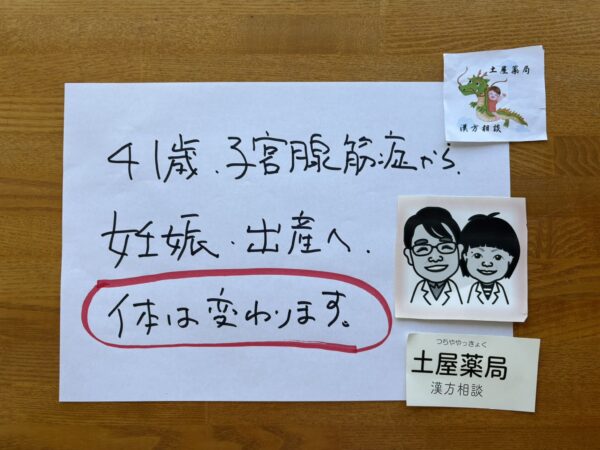 41歳、子宮腺筋症から、
妊娠、出産へ、
体は変わります。
土屋薬局
漢方相談
つちややっきょく
土屋薬局
漢方相談